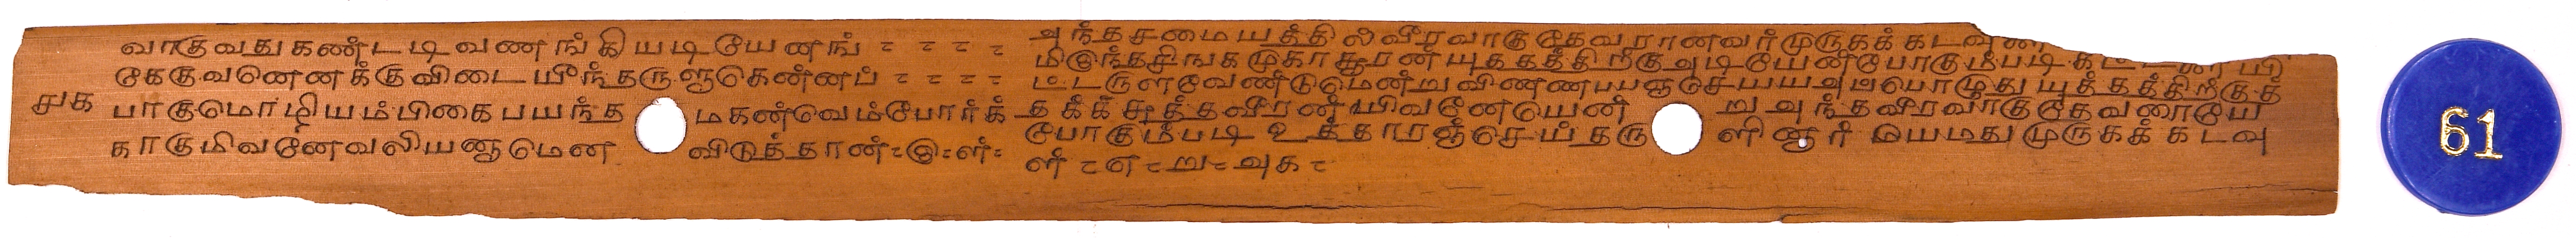 வாகுவது கண்டடி வணங்கியடியேனங்
கேகுவனெனக்குவிடை யீந்தருளுகென்னப்
சுக பாகுமொழியம்பிகை பயந்த மகன்வெம்போர்க்
காகுமிவனே வலியனாமென விடுத்தான்
அந்தசமையத்தில் வீரவாகுதேவரானவர் முருகக்கடவுள்
மிருந்த சிங்கமுகாசூரன் யுத்தத்திற்கு அடியேன்போகும்படி
ட்டருளவேண்டுமென்று விண்ணப்பஞ்செய்ய அப்பொழுது யுத்தத்திற்குத்
தக்க சுத்தவீரன் யிவனேயென்று அந்தவீரவாகுதேவரையே
போகும்படி உத்தாரஞ்செய்தருளினார் முருகக்கடவு
ள்
61